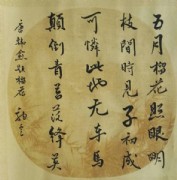 五月榴花照眼明
枝間時見子初成
可憐此地无車馬
顛倒青苔落絳英
唐韓愈題榴花